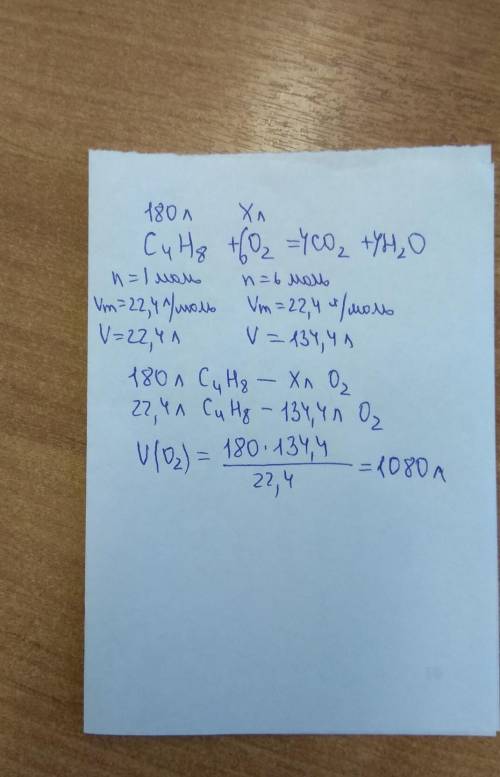 180л Xл
C4H8 + 6O2 = 4CO2 + 4H2O
n = 1 моль n = 6 моль
Vm = 22,4 л/моль Vm = 22,4 л/моль
V = 22,4 л V = 134,4 л
180л C4H8 — Xл O2
22,4л C4H8 — 134,4л O2
V(O2) = 180 · 134,4 / 22,4 = 1080 л